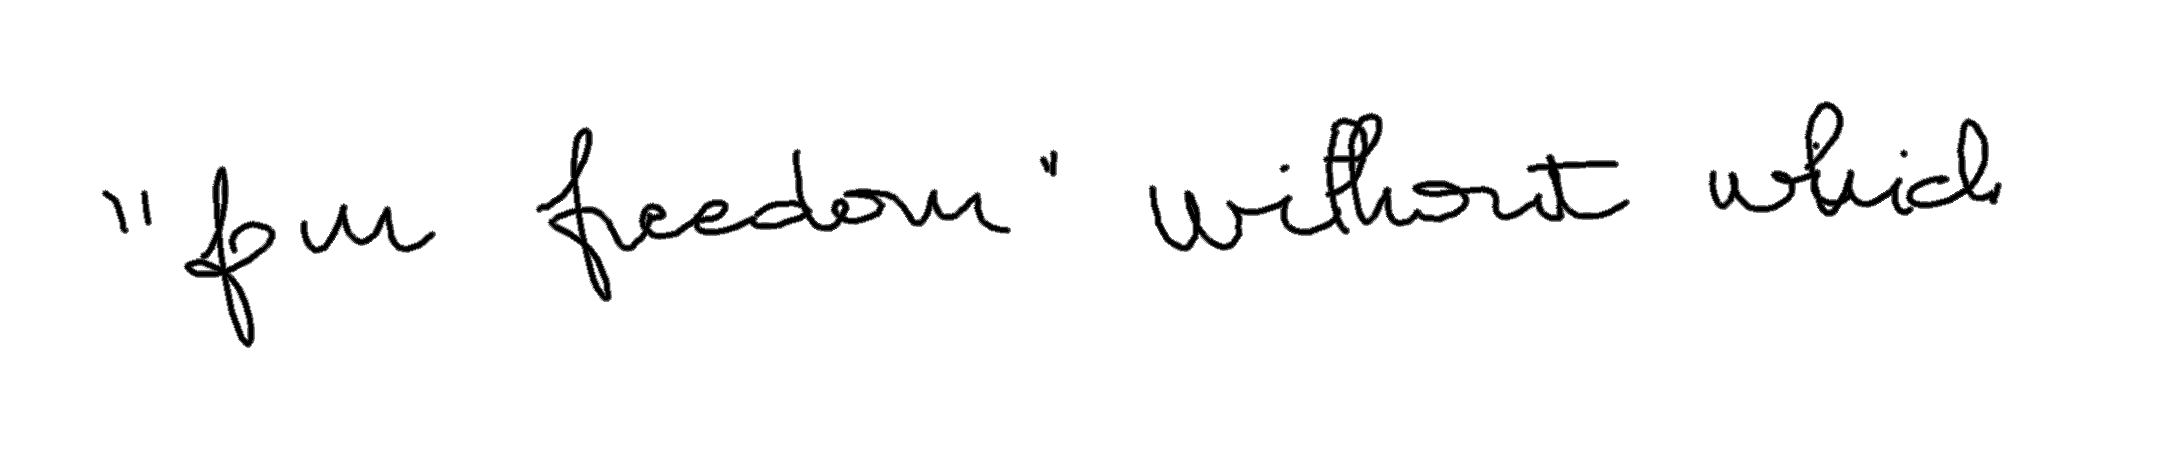 " freedom" without which